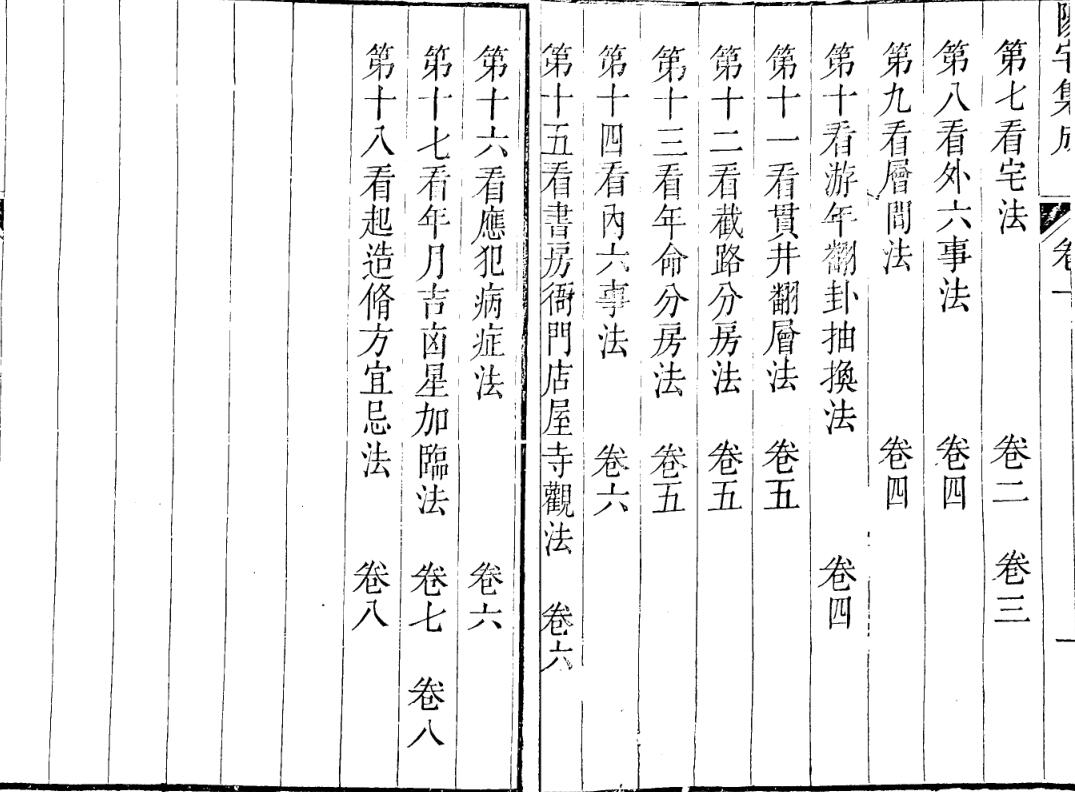 陽宅集成 卷一 一
第七看宅法 卷二 卷三
第八看外六事法 卷四
第九看層間法 卷四
第十看游年翻卦抽換法 卷四
第十一看貫井翻層法 卷五
第十二看截路分房法 卷五
第十三看年命分房法 卷五
第十四看內六事法 卷六
第十五看書房衙門店屋寺觀法 卷六
第十六看應犯病症法 卷六
第十七看年月吉凶星加臨法 卷七 卷八
第十八看起造脩方宜忌法 卷八